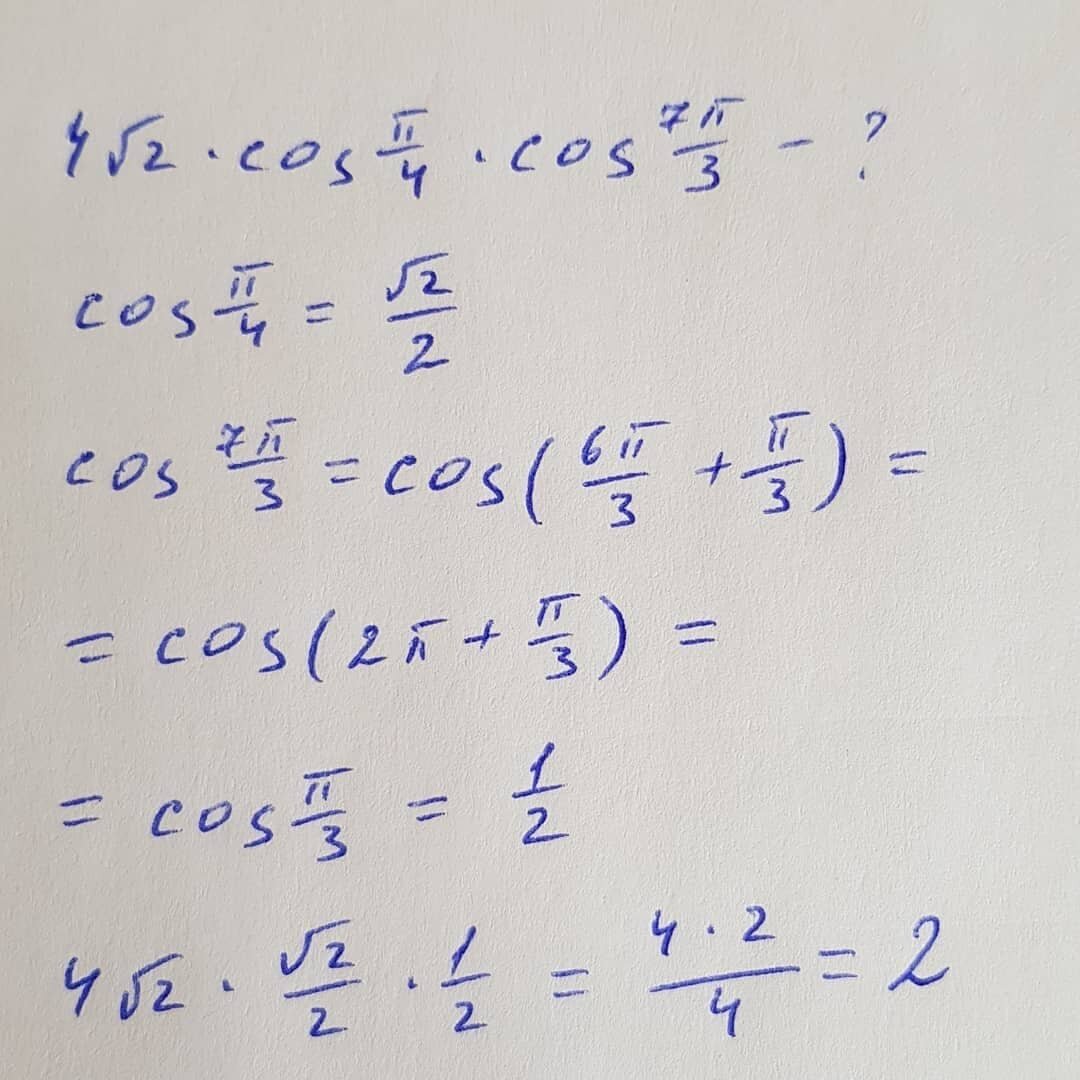 4√2 · cos π/4 · cos 7π/3 - ?
cos π/4 = √2/2
cos 7π/3 = cos(6π/3 + π/3) =
= cos(2π + π/3) =
= cos π/3 = 1/2
4√2 · √2/2 · 1/2 = 4·2/4 = 2